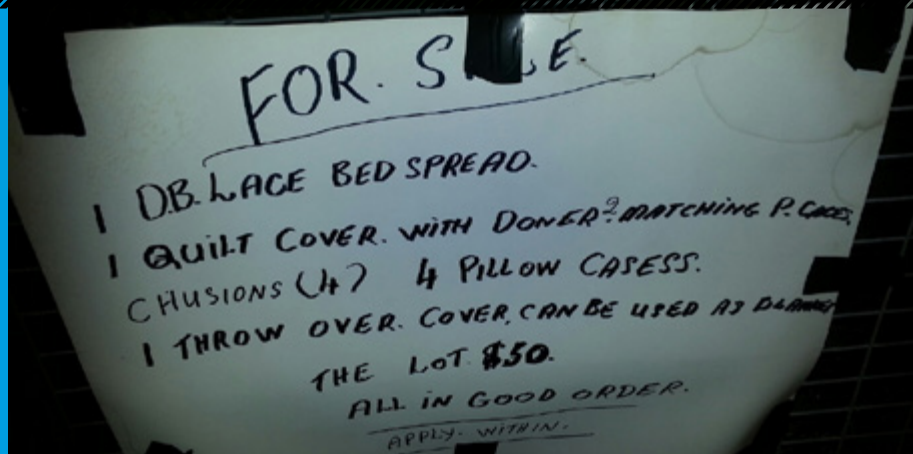 FOR. SALE.
1 D.B. LACE BED SPREAD.
1 QUILT COVER. WITH DONER? MATCHING P. CASES.
CHUSIONS (4) 4 PILLOW CASESS.
1 THROW OVER. COVER, CAN BE USED AS BLANKET
THE LOT $50.
ALL IN GOOD ORDER.
APPLY. WITHIN.